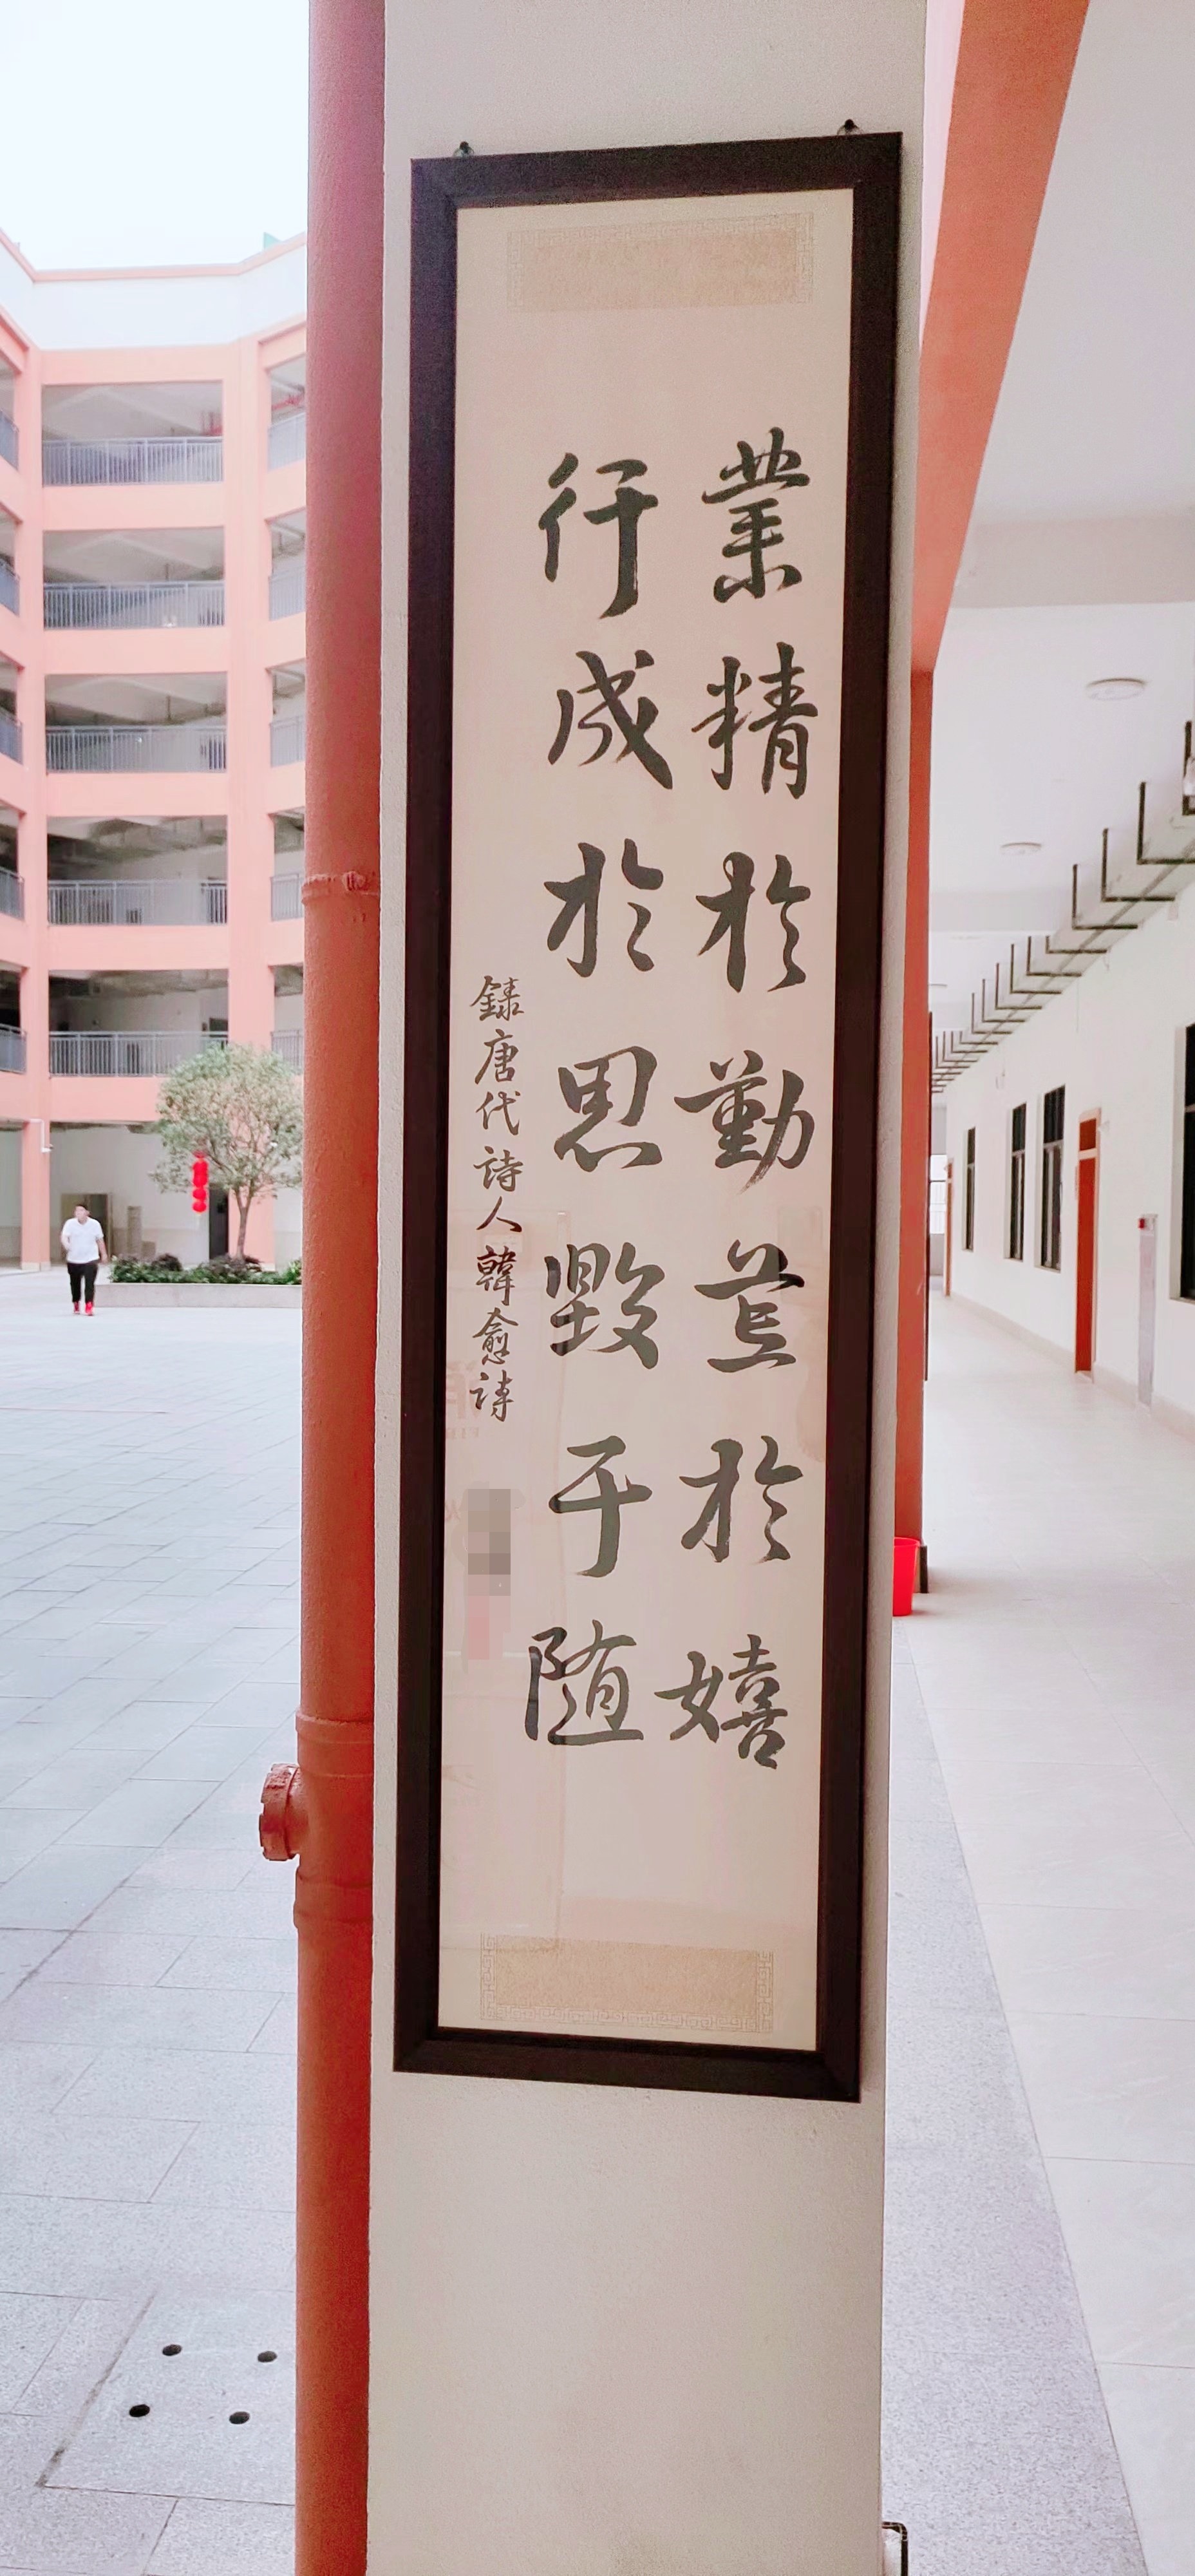 業精於勤荒於嬉
行成於思毀于随
録唐代詩人韓愈詩